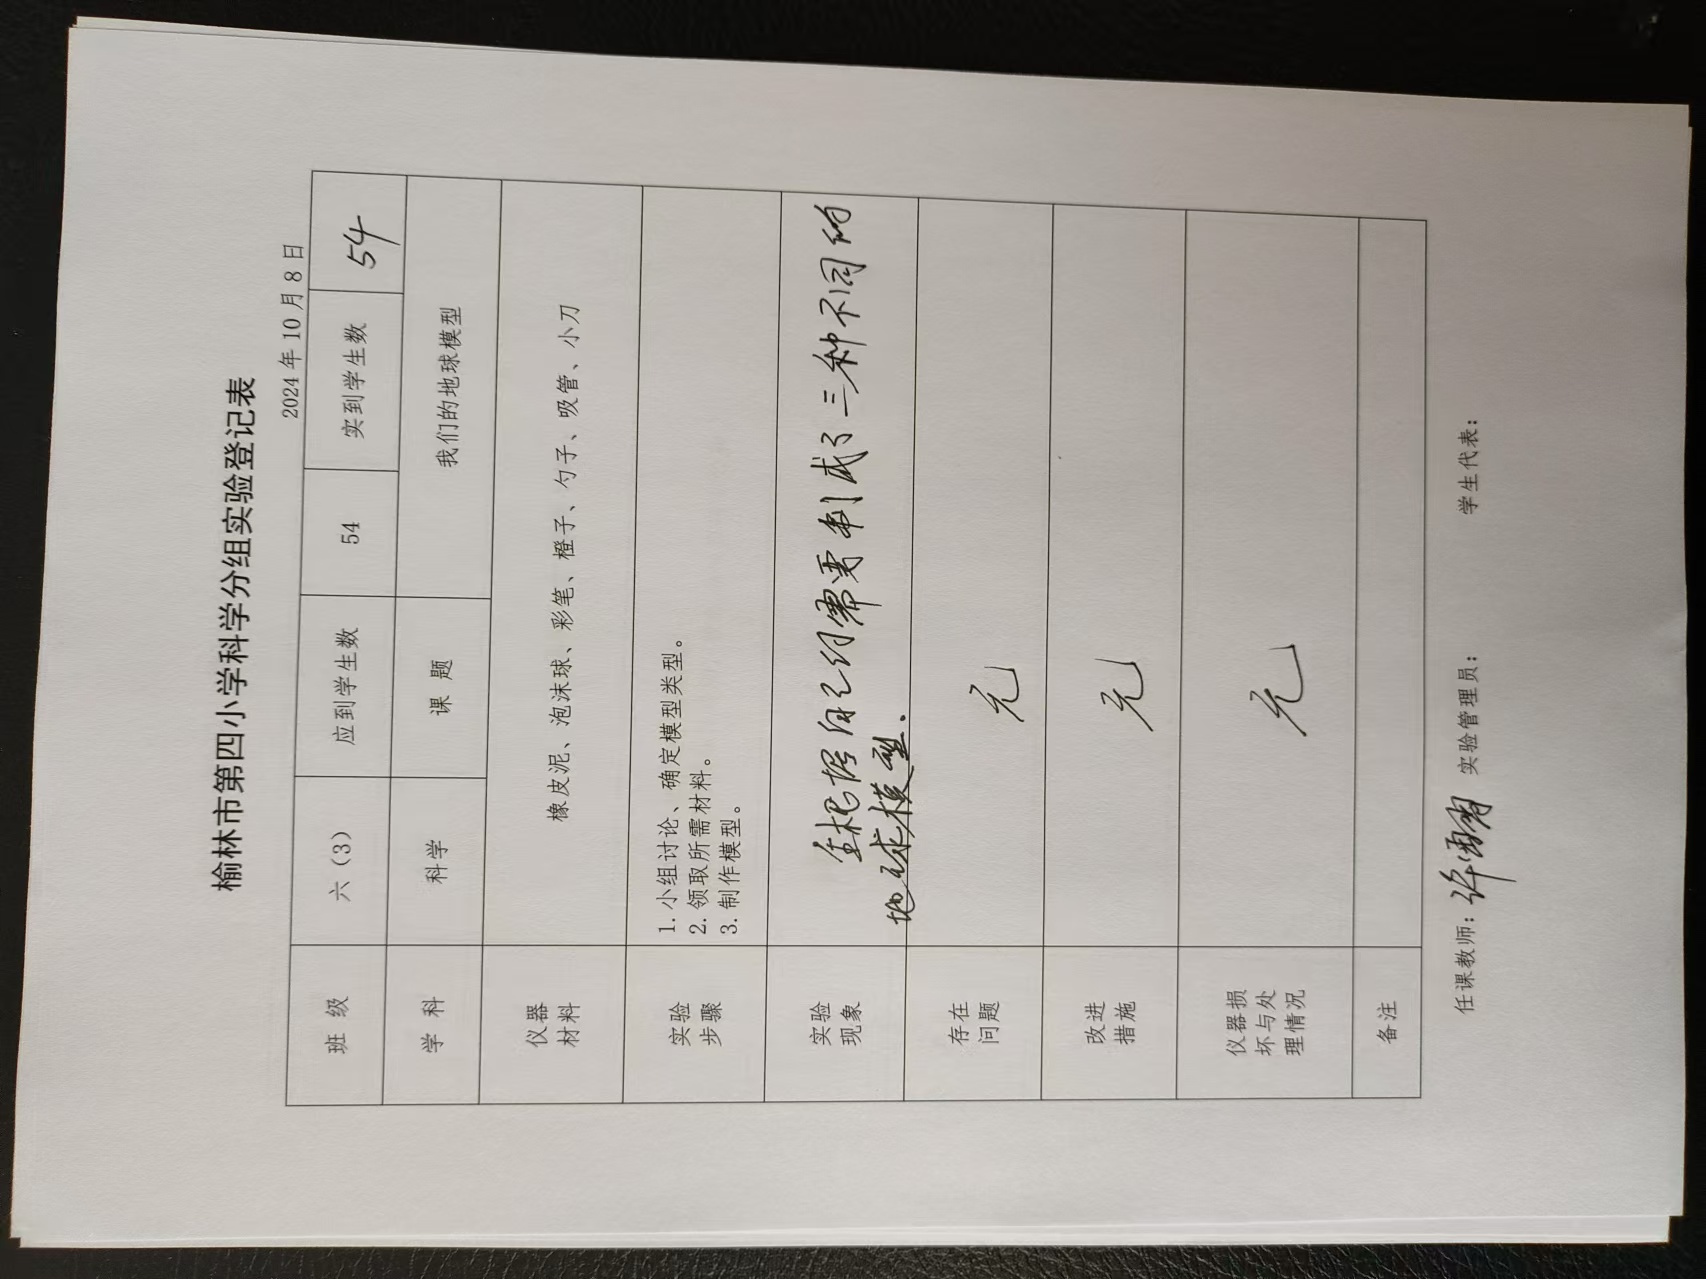 榆林市第四小学科学分组实验登记表
2024 年 10 月 8 日
班 级 六（3） 应到学生数 54 实到学生数 54
学 科 科学 课 题 我们的地球模型
仪器
材料
橡皮泥、泡沫球、彩笔、橙子、勺子、吸管、小刀
实验
步骤
1. 小组讨论、确定模型类型。
2. 领取所需材料。
3. 制作模型。
实验
现象
生根据自己的需要制成了三种不同的
地球模型.
存在
问题
无
改进
措施
无
仪器损
坏与处
理情况
无
备注
任课教师： 实验管理员： 学生代表：